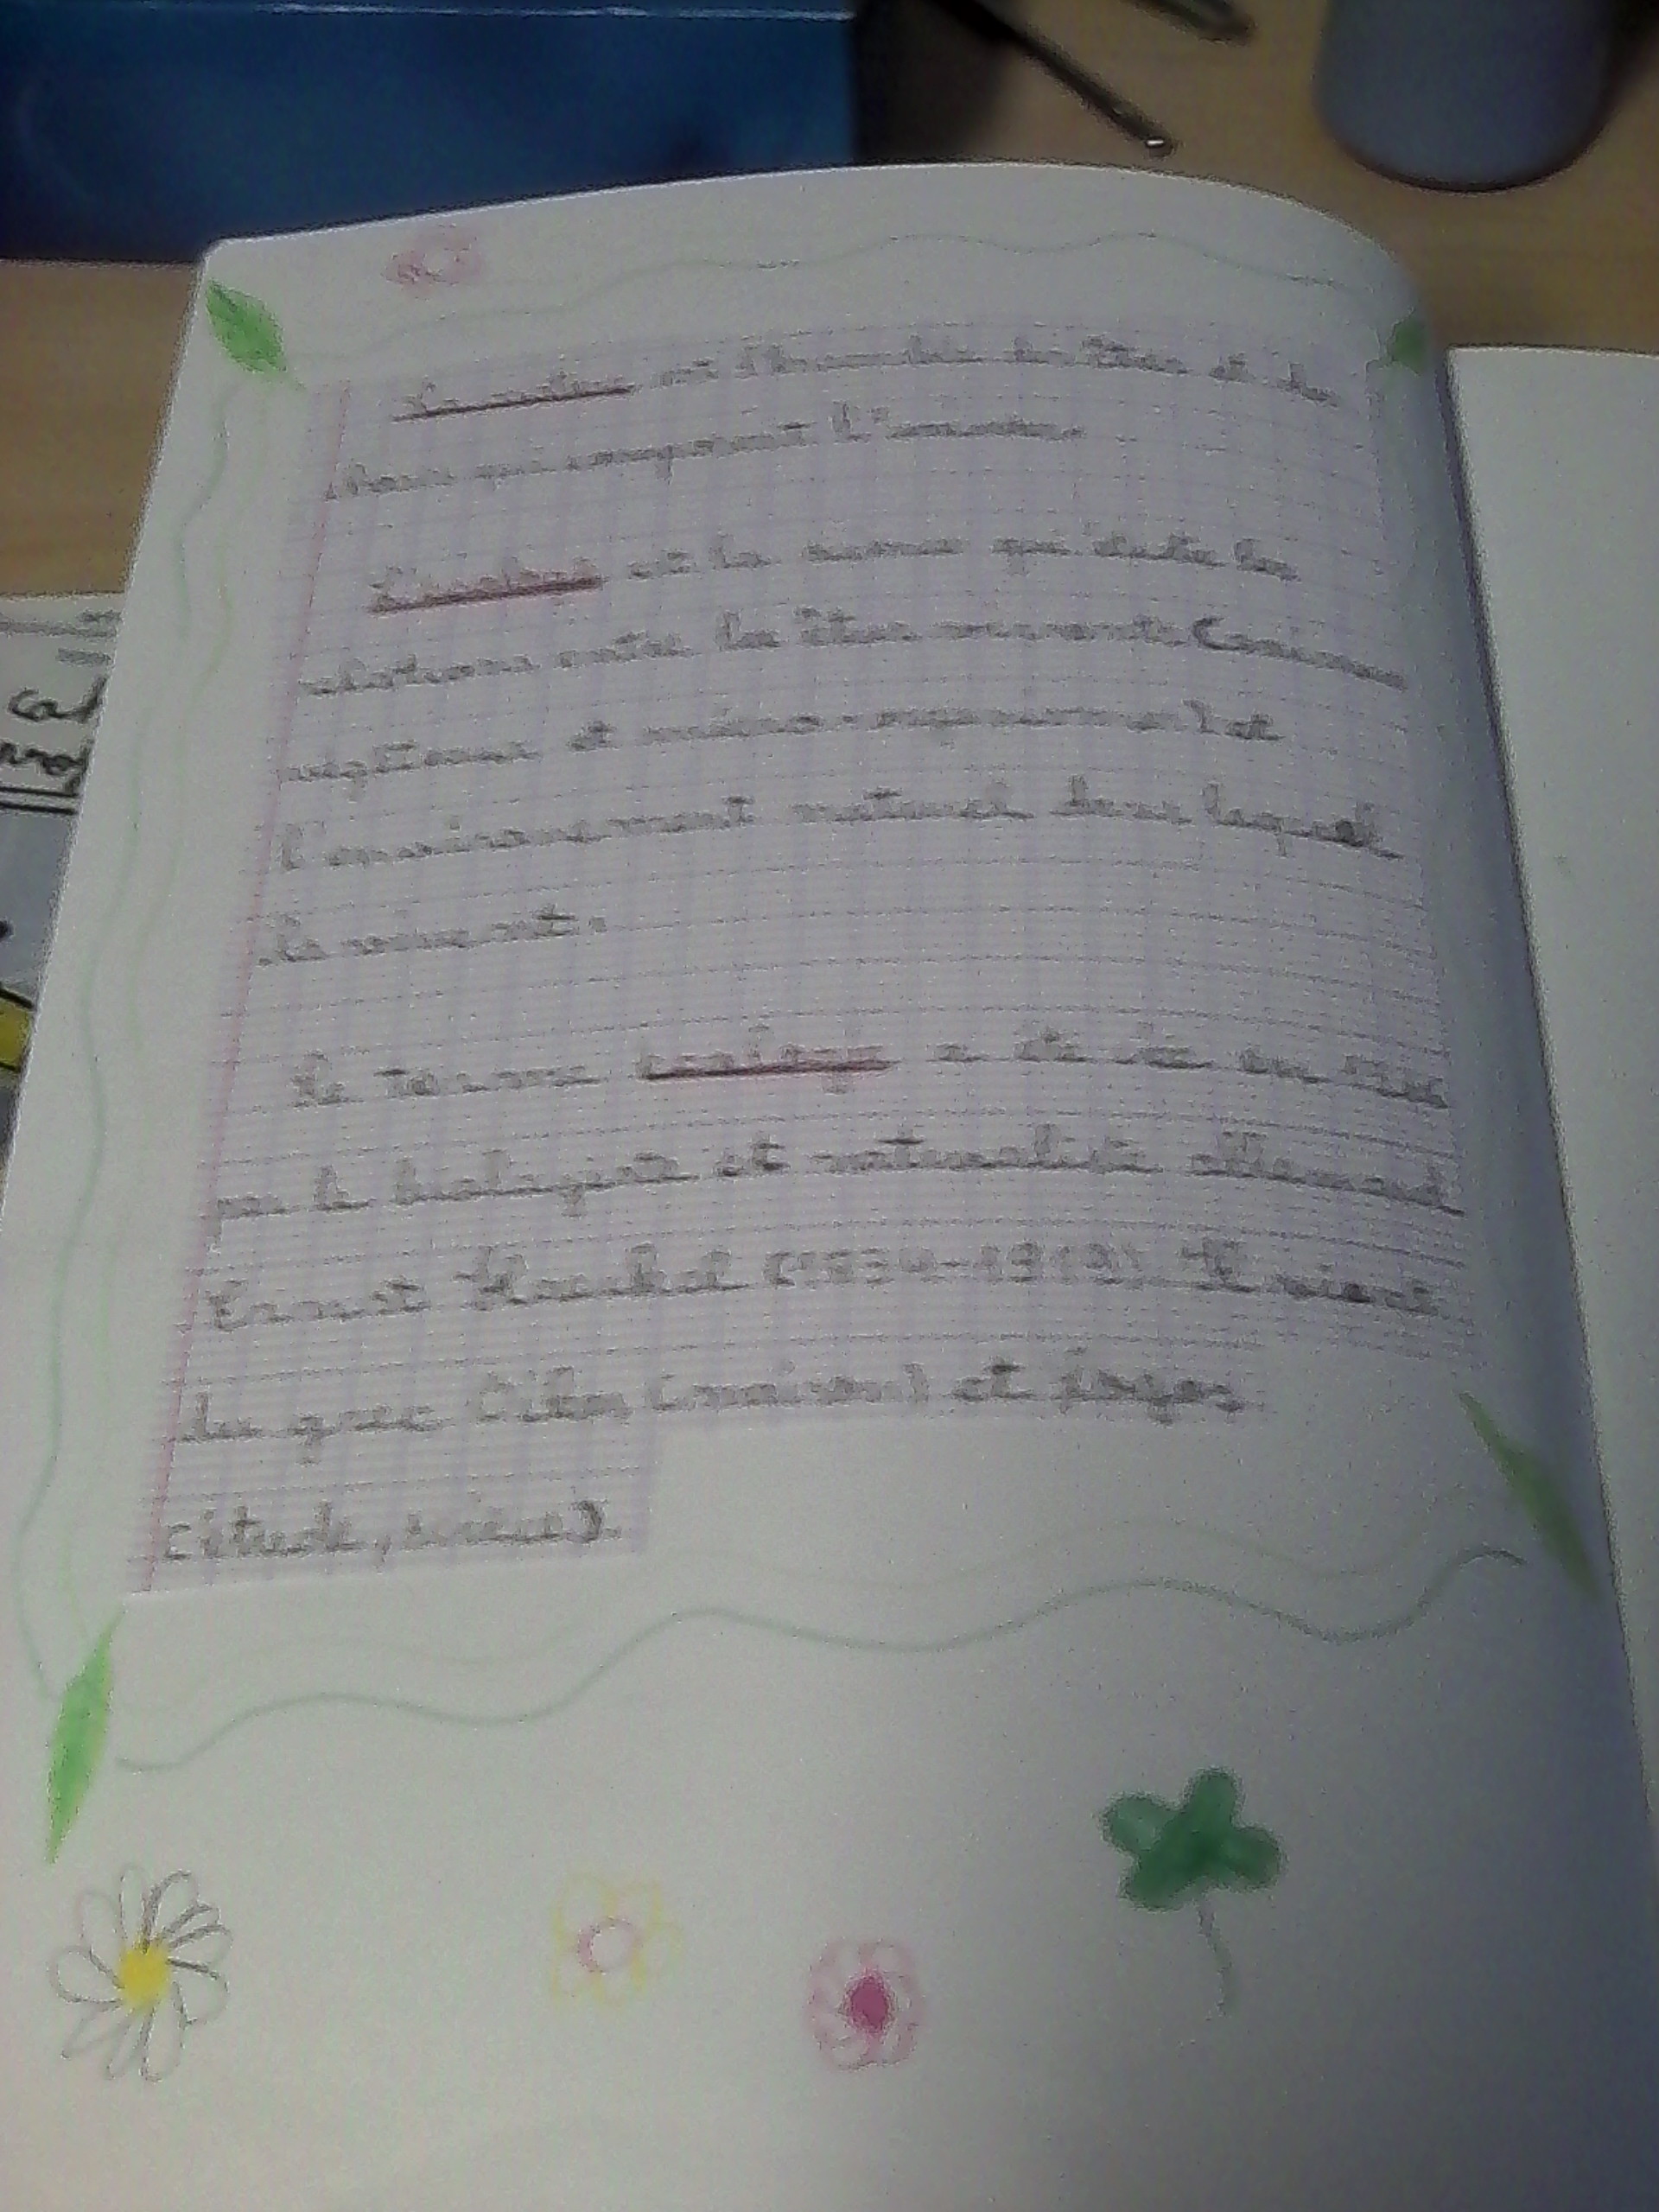 La nature est l'ensemble des êtres et des
qui composent l'univers.
L'écologie est la science qui étudie les
relations entre les êtres vivants (animaux
végétaux et micro-organismes) et
l'environnement naturel dans lequel
ils vivent.
Le terme écologie a été créé en
par le biologiste et naturaliste allemand
Ernst Haeckel (1834-1919). Il vient
du grec (maison) et logos
(étude, science).